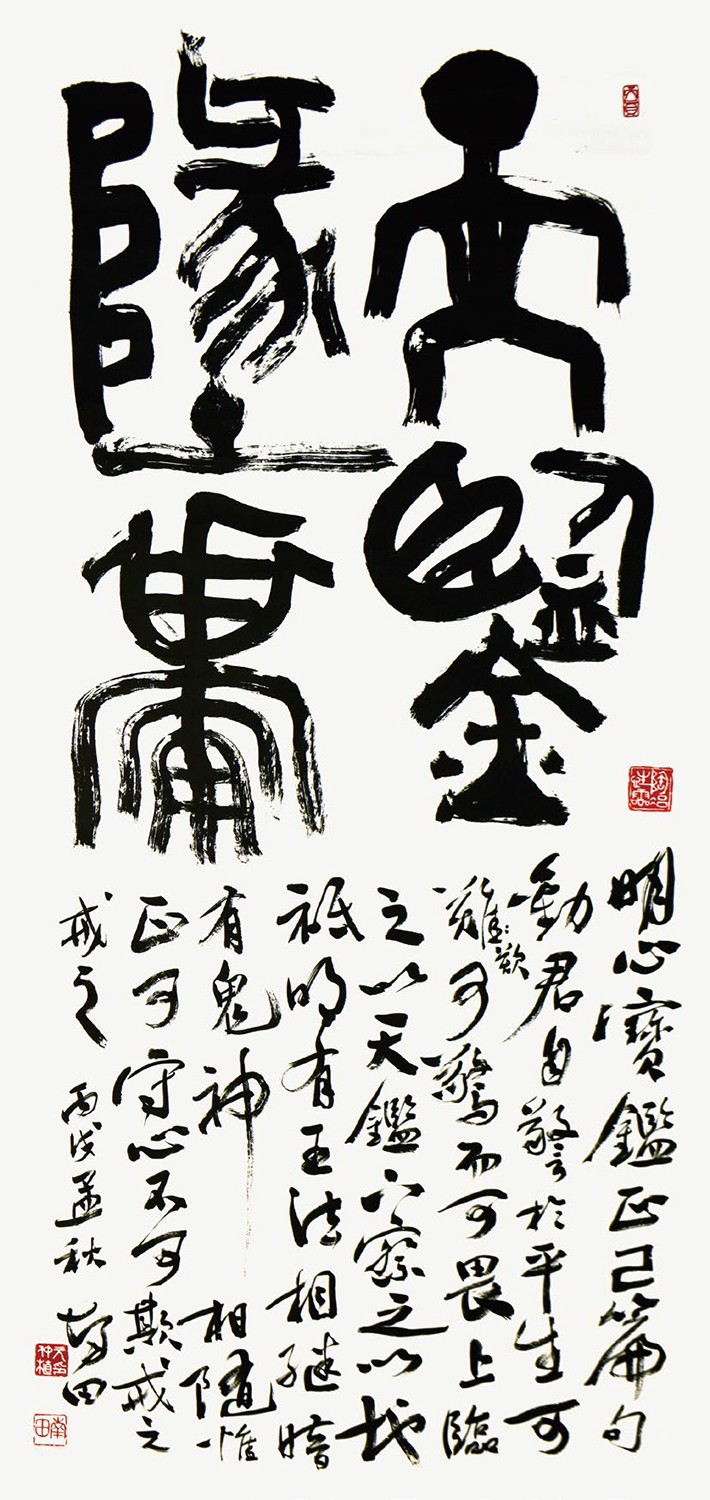 天鑒
墬
明心寶鑑正己篇句
勸君自警於平生可
難歎可驚而可畏上臨
之以天鑑下察之以地
祇明有王法相繼暗
有鬼神相隨惟
正可守心不可欺戒之
戒之 丙戌孟秋
陶冶性靈
南田